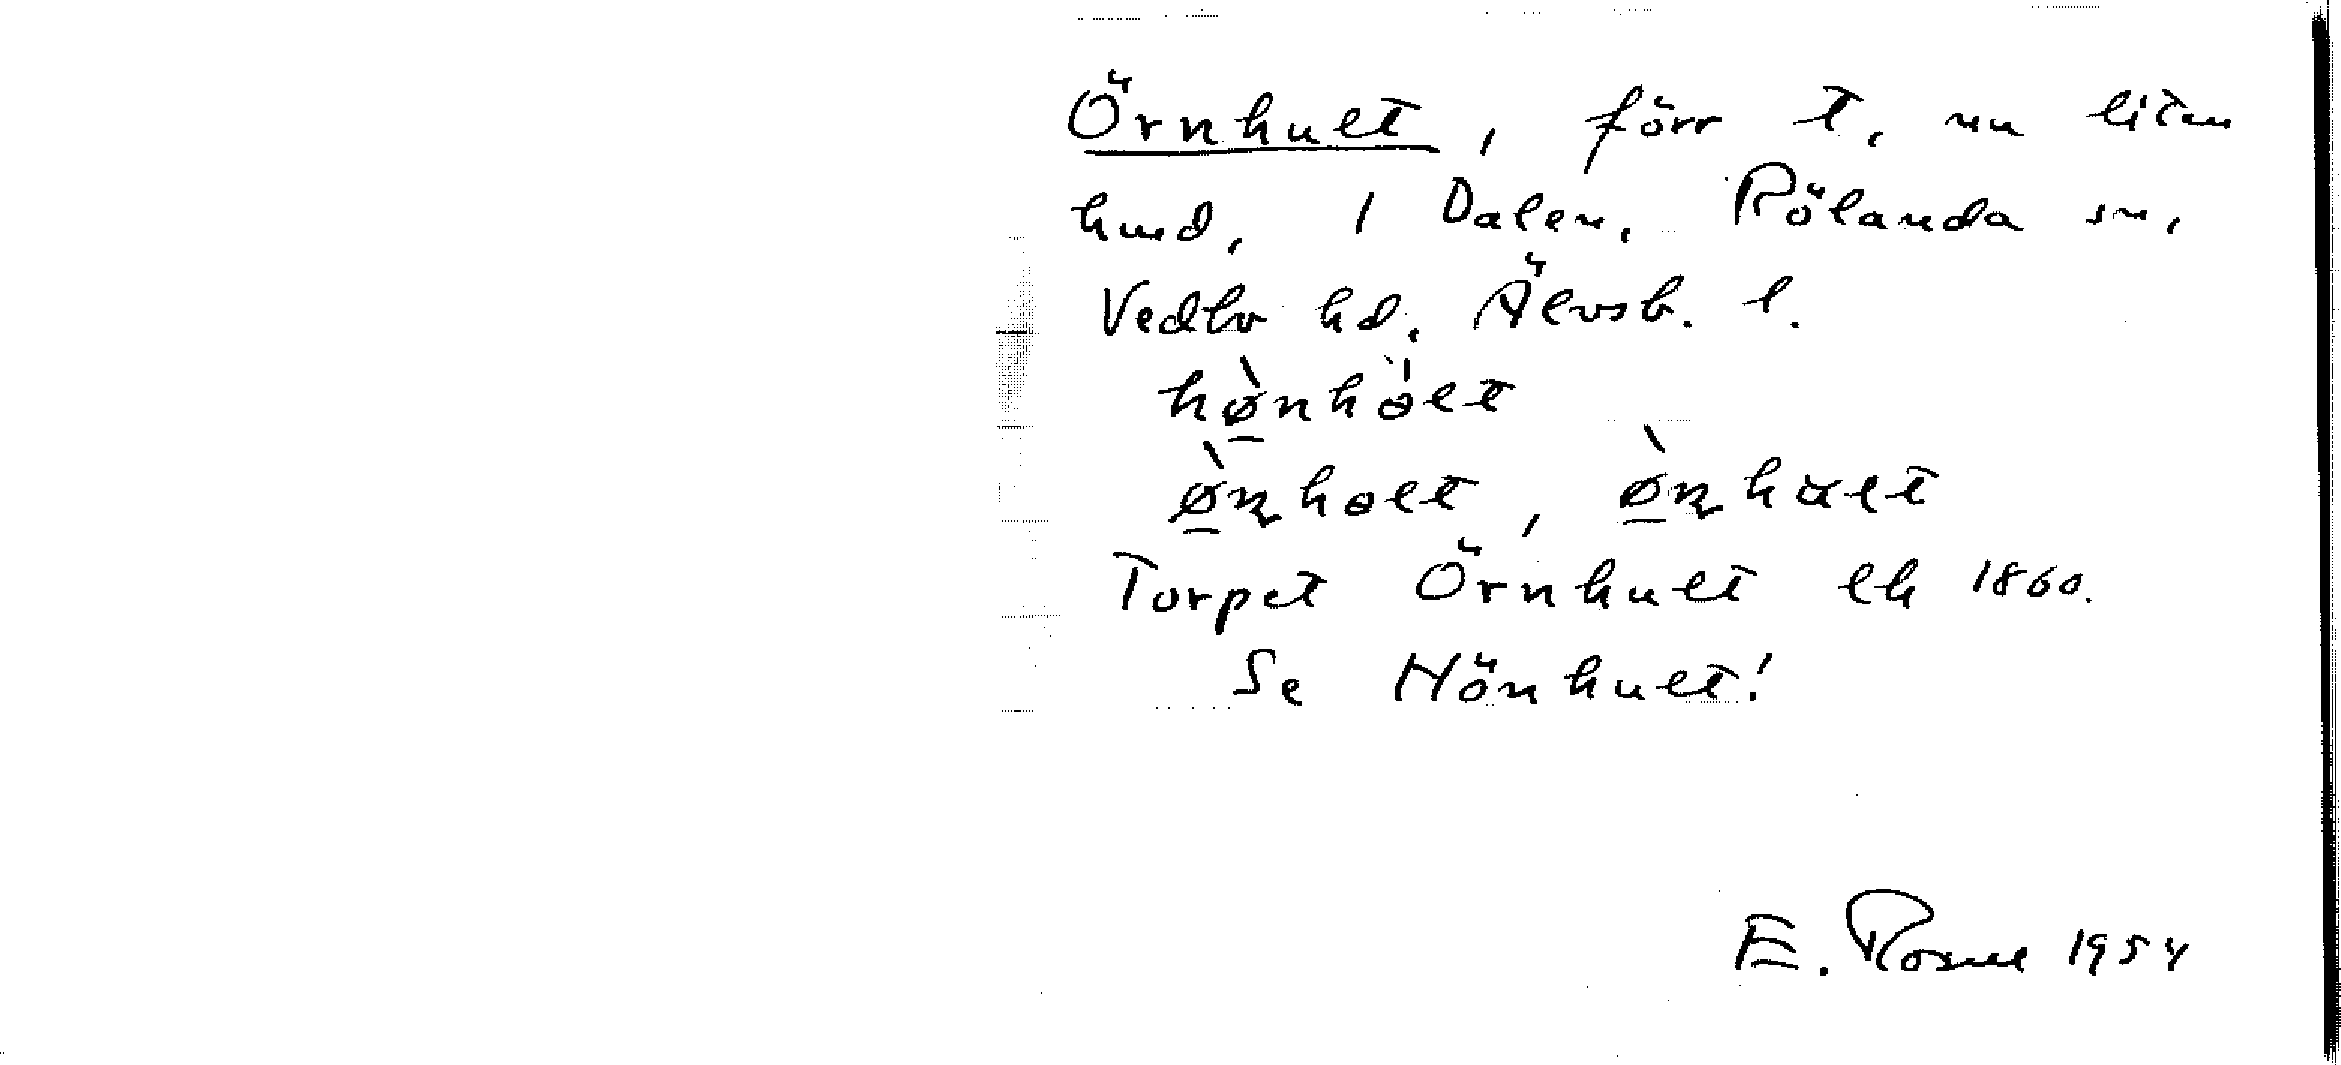 Örnhult, förr t, nu liten
hmd, i Dalen, Rölanda sn,
Vedbo hd, Älvsb. l.
hø̱̀nhòlt
ø̱̀ɳholt, ø̱̀ɳhult
Torpet Örnhult ek 1860.
Se Hönhult!
E. Rosell 1954